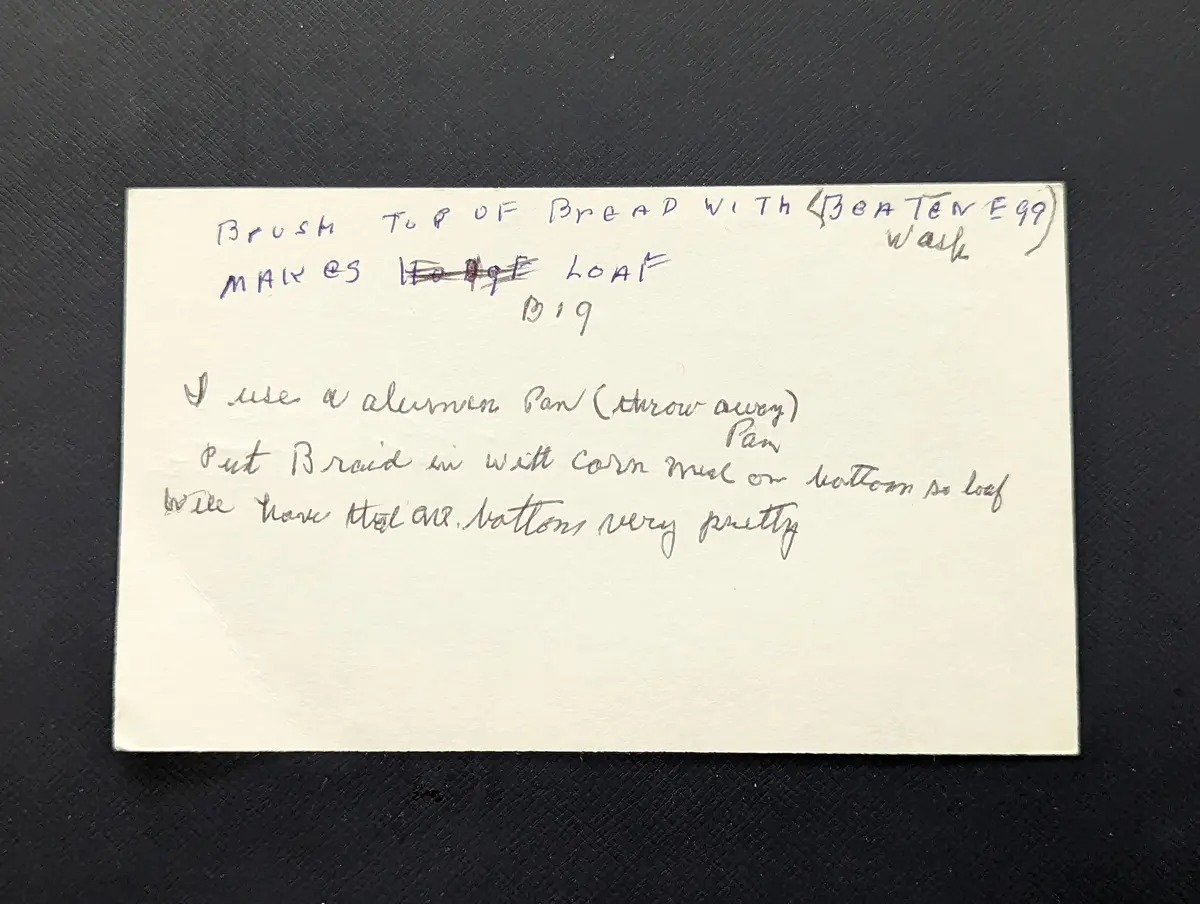 BrUSH TOP OF BreAD WITH (BeATEN Egg)
Wash
MAKeS LOAF
BIg
I use a alumen Pan (throw away)
Pan
Put Braid in with corn meal on bottom so loaf
will have on bottom very pretty